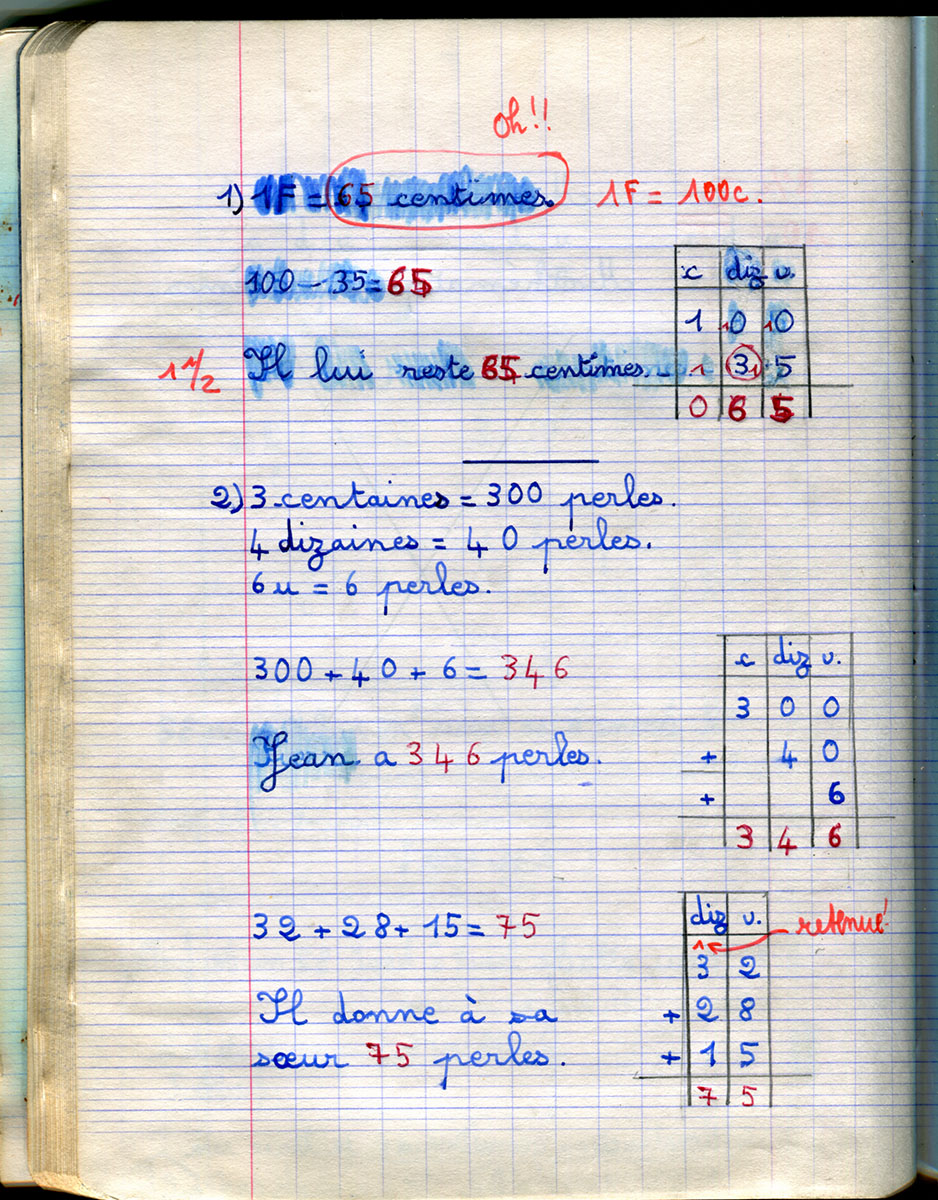 oh!!
1) 1F = 65 centimes. 1F = 100c.
100 - 35 = 65
1 1/2 Il lui reste 65 centimes.
c diz u.
1 10 10
- 1 31 5
0 6 5
2) 3 centaines = 300 perles.
4 dizaines = 40 perles.
6 u = 6 perles.
300 + 40 + 6 = 346
Jean a 346 perles.
c diz u.
3 0 0
+ 4 0
+ 6
3 4 6
32 + 28 + 15 = 75
Il donne à sa
sœur 75 perles.
diz u.
1 retenue!
3 2
+ 2 8
+ 1 5
7 5